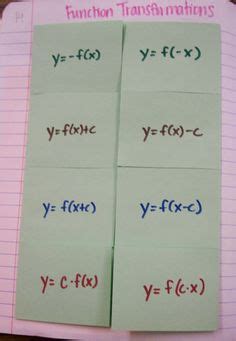 Function Transformations
y=-f(x) y=f(-x)
y=f(x)+c y=f(x)-c
y= f(x+c) y=f(x-c)
y= c·f(x) y= f(c·x)